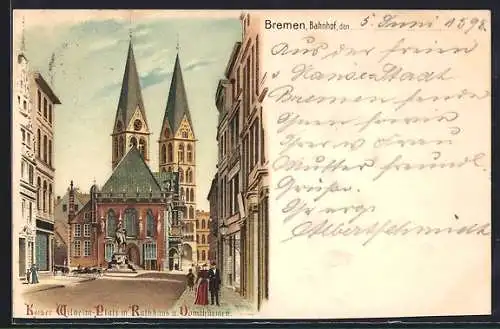 Bremen, Bahnhof, den 5. Juni 1898
Aus der freien
Hansestadt
Bremen sende
Ihnen
Frau
Mutter freundl.
Grüße.
Ihr erg.
Albert Schmidt
Kaiser Wilhelm-Platz m. Rathhaus u. Domthürmen.